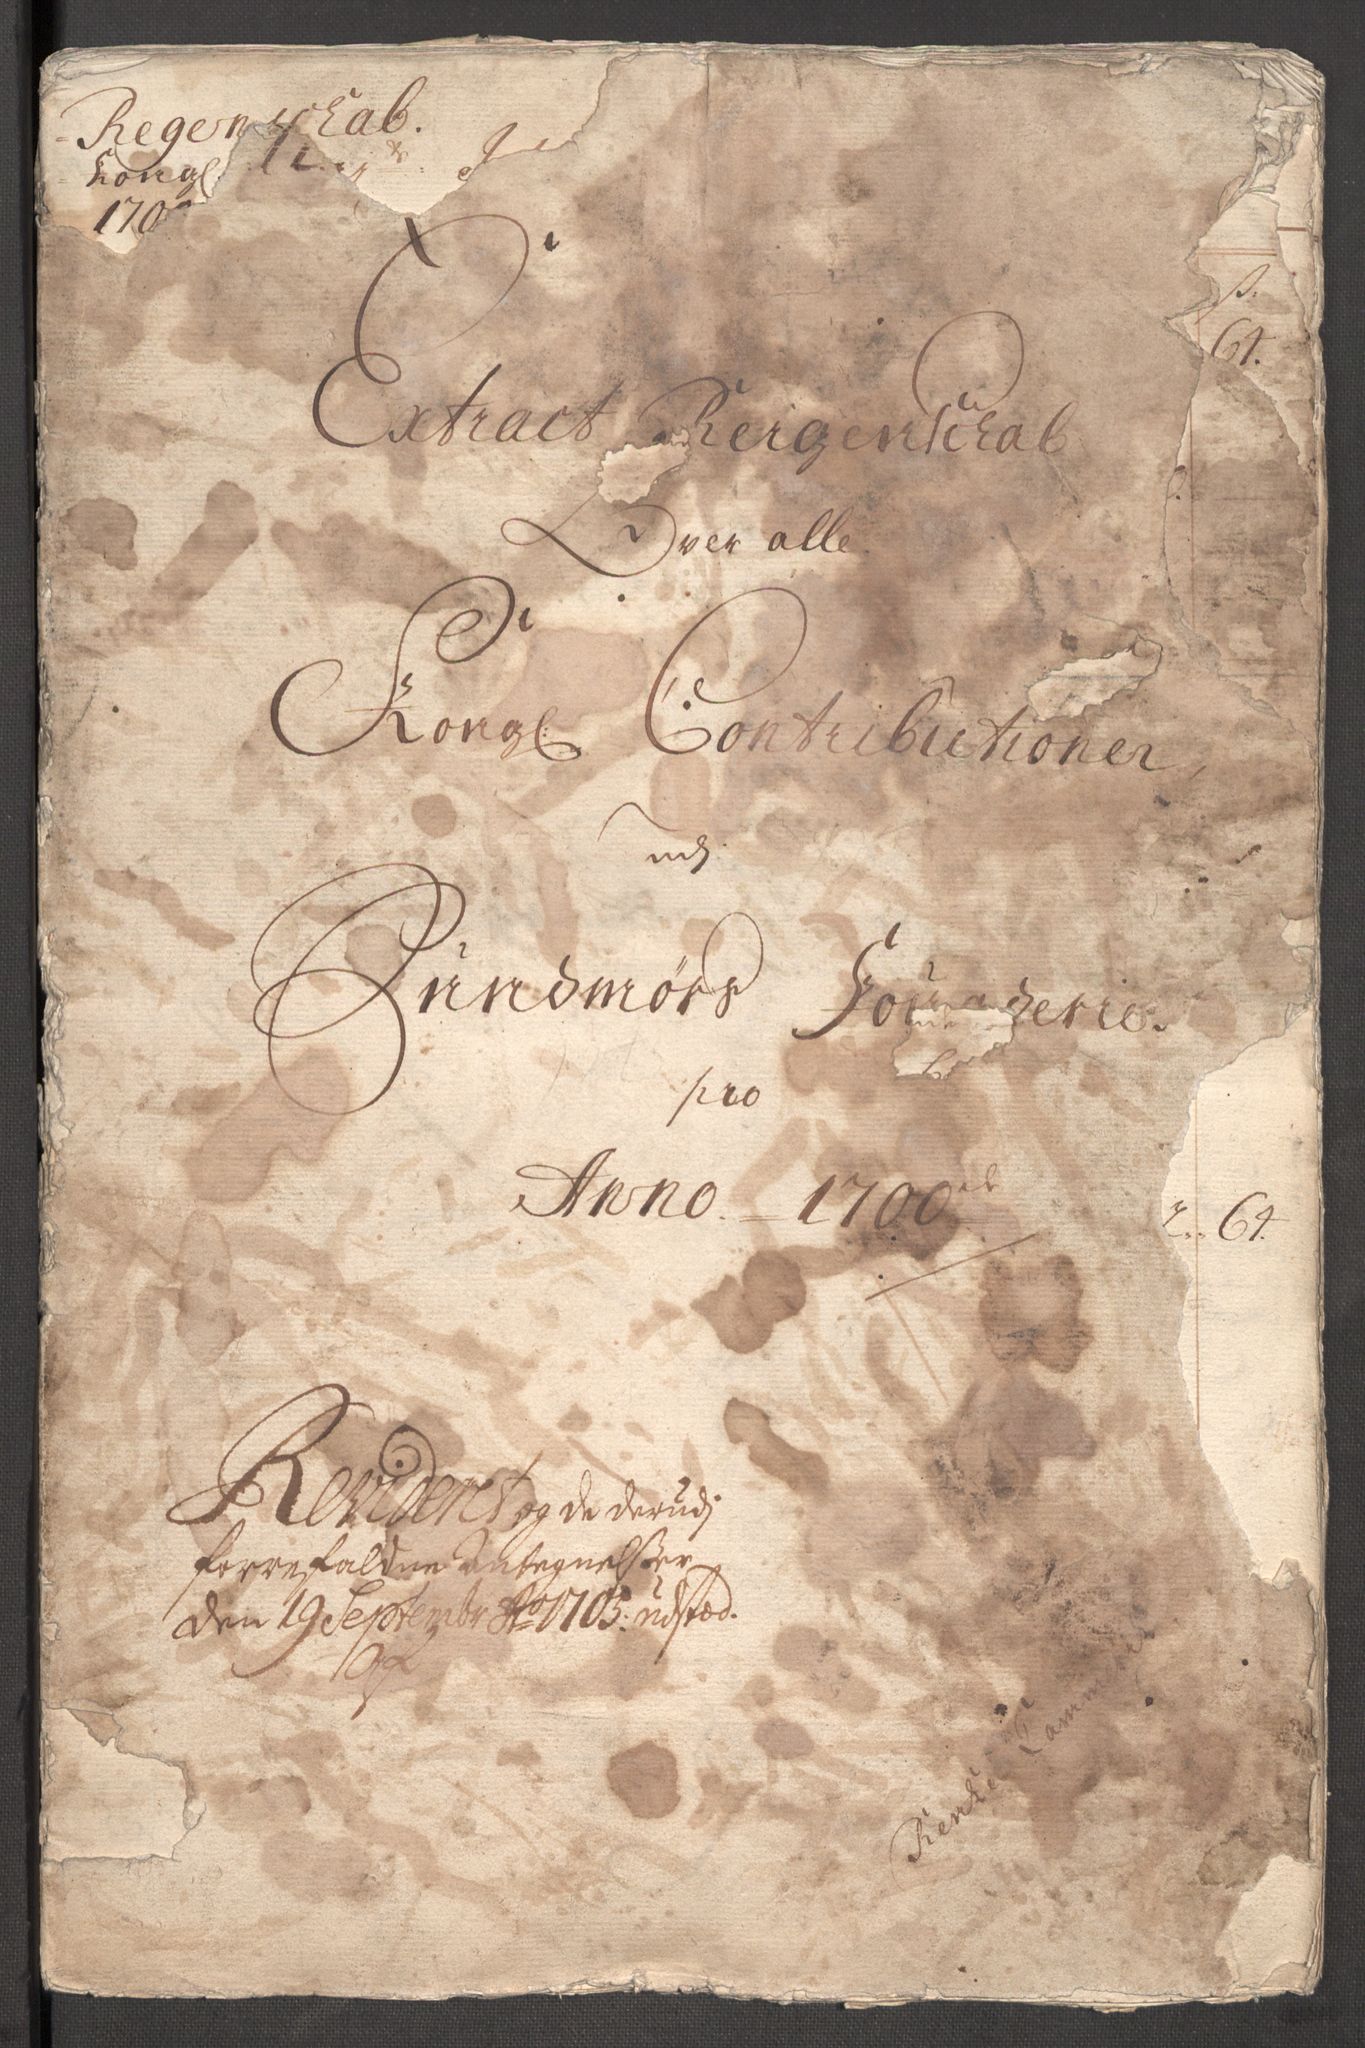 Regenskab.
Kongl
170
Extract Reigenskab
Over alle
Kongl Contributioner
udj
Sundmørs Fougderie.
pro
Anno. 1700
ß.
64.
64.
Revideret og de derudj
forrefaldne Antegnelsser
den 19 Septembr Ao 1705. udstæd.
Rente Cammer